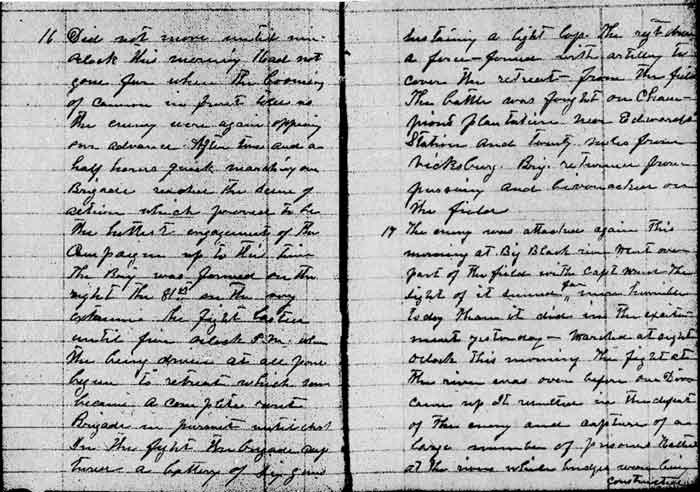 16 Did not move until nine
oclock this morning Had not
gone far when the booming
of cannon in front told us
the enemy were again opposing
our advance. After two and a
half hours quick marching our
Brigade reached the scene of
action which proved to be
the hottest engagement of the
Campaign up to this time
The Brig was formed on the
right the 81st on the very
extreme the fight lasted
until four oclock P.M. when
the being driven at all points
began to retreat which soon
became a complete rout
Brigade in pursuit until dark
In the fight the brigade cap
tured a battery of six guns
sustaining a light loss. The regt drove
a force formed with artillery to
cover the retreat from the field
The battle was fought on Cham
pions plantation near Edwards
Station and twenty miles from
Vicksburg. Brig. returned from
pursuing and bivouacked on
the field
17 The enemy was attacked again this
morning at Big Black river Went over
part of the field with Capt the
sight of it seemed far more horrible
today than it did in the excite
ment yesterday - Marched at eight
oclock this morning The fight at
the river was over before our Div
came up It resulted in the defeat
of the enemy and capture of a
large number of prisoners
at the river while bridges were being
constructed